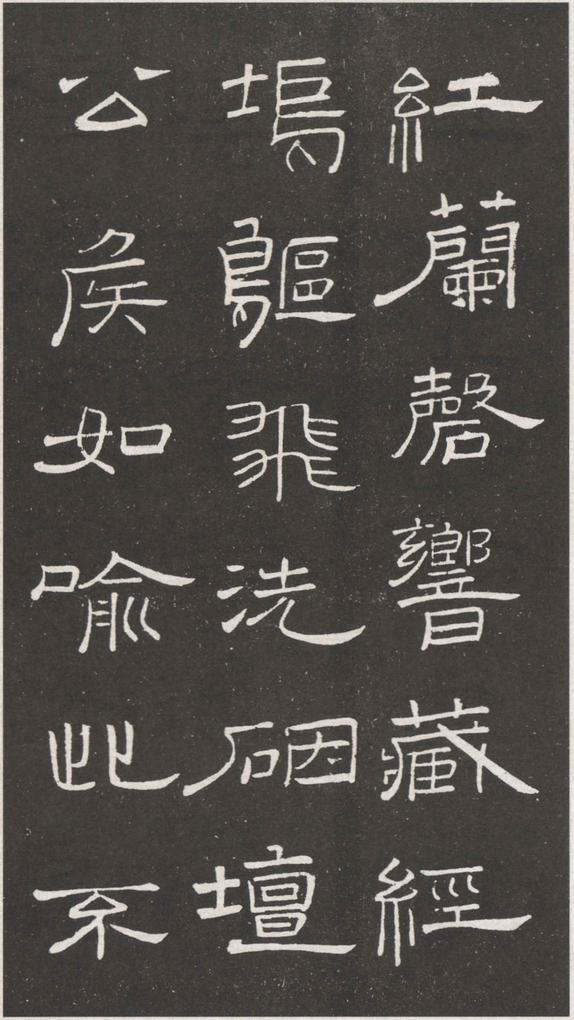 紅蘭磬響藏經
塢鷗飛洗壇
公矦如喻此不